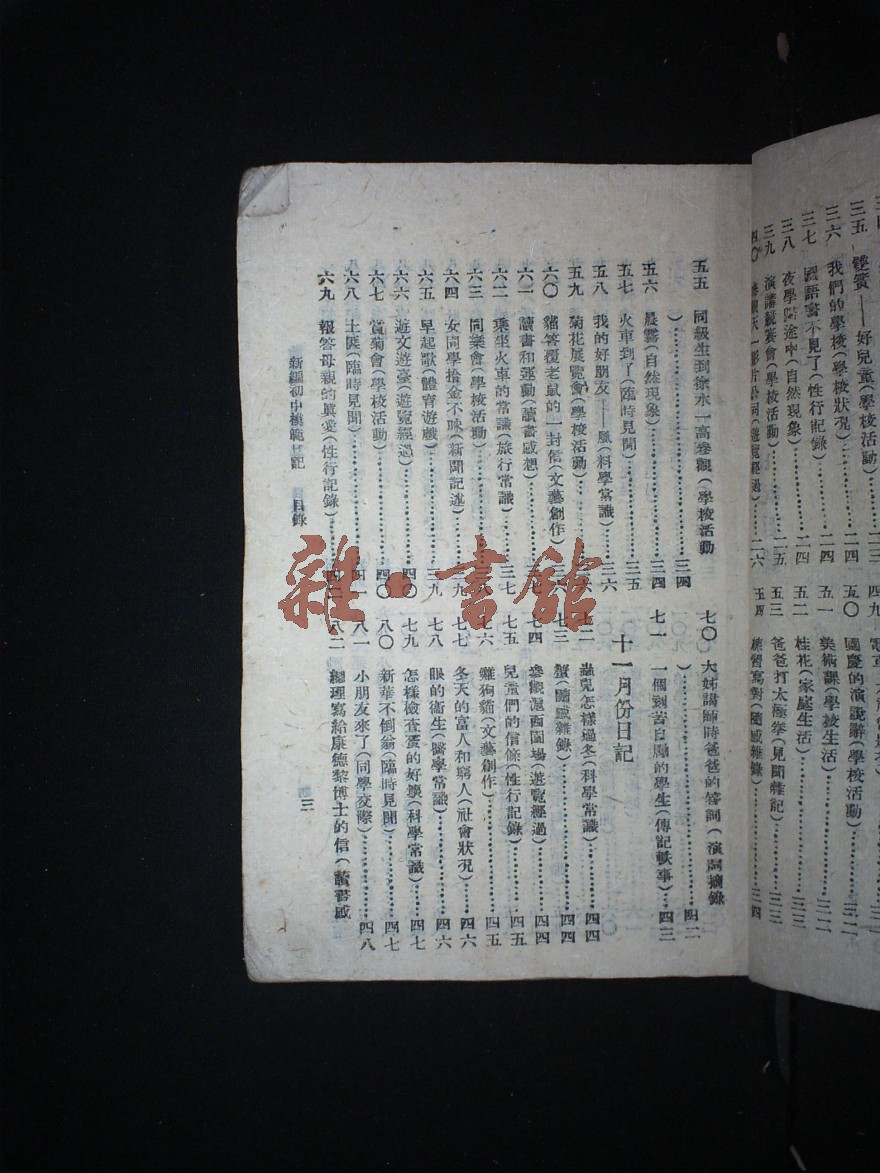 三五 雙簧——好兒童（學校活動）
三六 我們的學校（學校狀况）……二四
三七 國語書不見了（性行記錄）……二四
三八 夜學歸途中（自然現象）……二四
三九 演講競賽會（學校活動）……二五
四〇 （遊覽經過）……二六
四九
五〇 國慶的演說辭（學校活動）……三二
五一 美術課（學校生活）……三二
五二 桂花（家庭生活）……三三
五三 爸爸打太極拳（見聞雜記）……三三
五四 練習寫對（隨感雜錄）……三四
五五 同級生到徐水一高參觀（學校活動
）……三四
五六 晨霧（自然現象）……三四
五七 火車到了（臨時見聞）……三五
五八 我的好朋友——風（科學常識）……三六
五九 菊花展覽會（學校活動）……
六〇 貓答覆老鼠的一封信（文藝創作）
六一 讀書和運動（讀書感想）……
六二 乘坐火車的常識（旅行常識）……三七
六三 同樂會（學校活動）……三八
六四 女同學拾金不昧（新聞記述）……三九
六五 早起歌（體育遊戲）……三九
六六 遊文遊臺（遊覽經過）……四〇
六七 賞菊會（學校活動）……四〇
六八 土匪（臨時見聞）……四一
六九 報答母親的眞愛（性行記錄）……四二
七〇 大姊講師時爸爸的答詞（演詞摘錄
）……四二
七一 一個刻苦自勵的學生（傳記軼事）……四三
十一月份日記
七二 蟲兒怎樣過冬（科學常識）……四四
七三 蟹（隨感雜錄）……四四
七四 參觀滬西園場（遊覽經過）……四四
七五 兒童們的信條（性行記錄）……四五
七六 雞狗貓（文藝創作）……四五
七七 冬天的富人和窮人（社會狀况）……四六
七八 眼的衞生（醫學常識）……四六
七九 怎樣檢查蛋的好壞（科學常識）……四七
八〇 新華不倒翁（臨時見聞）……四七
八一 小朋友來了（同學交際）……四八
八二 總理寫給康德黎博士的信（讀書感
新編初中模範日記 目錄
三
雜·書館